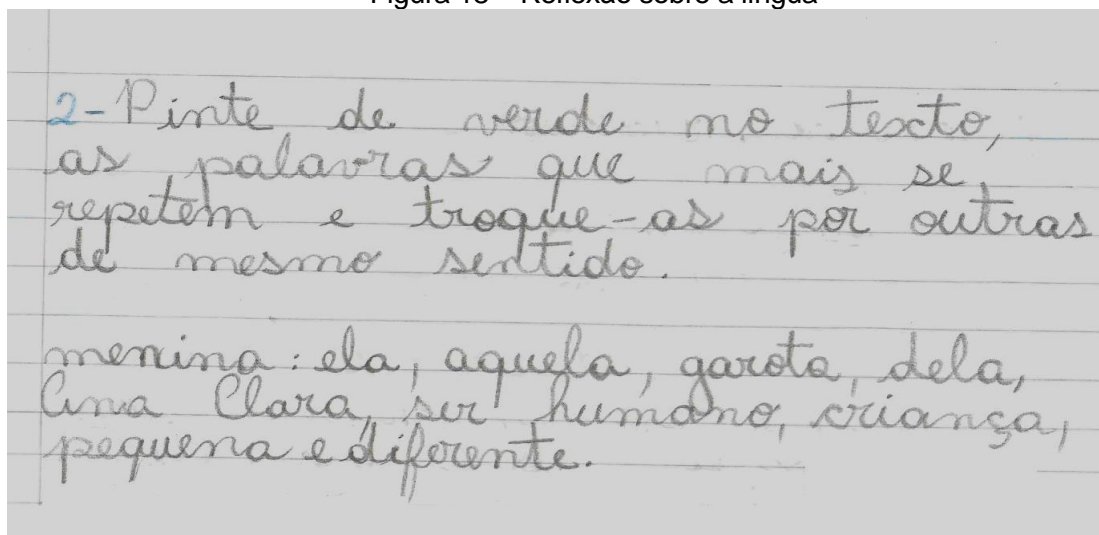 2-Pinte de verde no texto,
as palavras que mais se
repetem e troque-as por outras
de mesmo sentido.
menina: ela, aquela, garota, dela,
Ana Clara, ser humano, criança,
pequena e diferente.